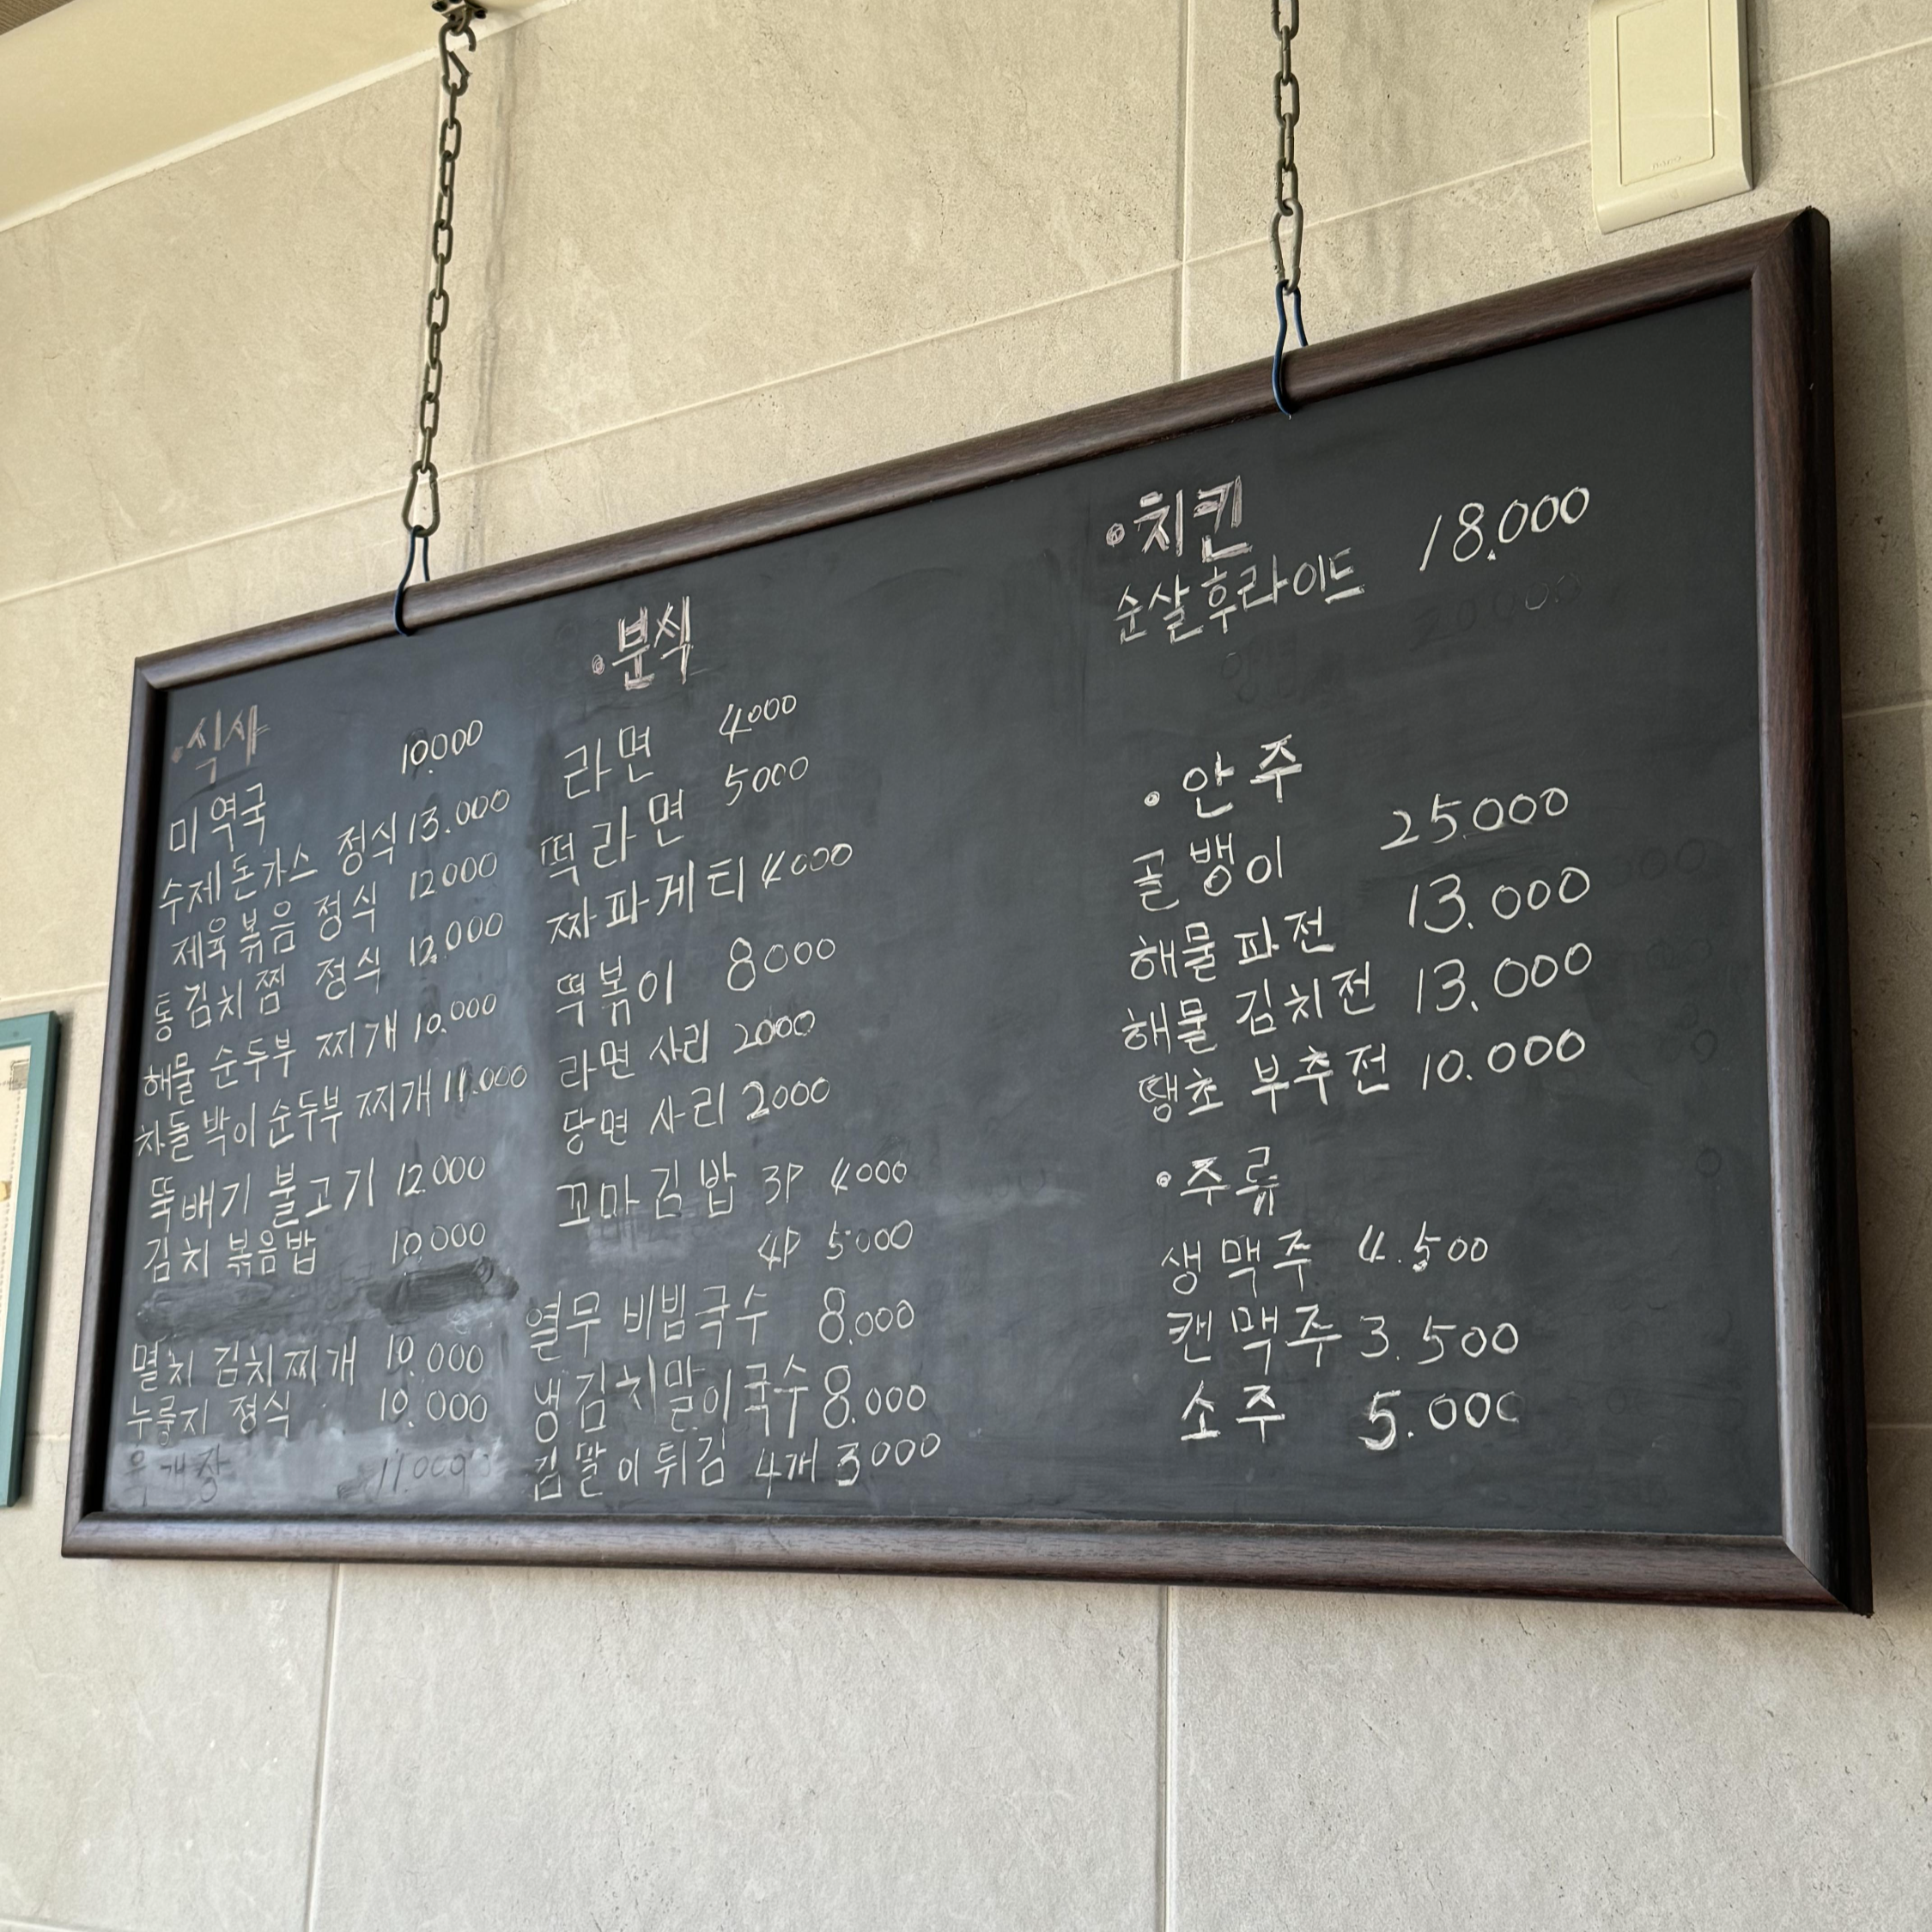 •식사
미역국 10.000
수제돈가스 정식 13.000
제육볶음 정식 12000
통김치찜 정식 12,000
해물 순두부 찌개 10.000
차돌박이순두부 찌개 11.000
뚝배기 불고기 12.000
김치 볶음밥 10.000
멸치 김치찌개 10.000
누룽지 정식 10.000
육개장 11.000
•분식
라면 4000
떡라면 5000
짜파게티 4000
떡볶이 8000
라면 사리 2000
당면 사리 2000
꼬마김밥 3P 4000
4P 5000
열무 비빔국수 8.000
냉김치말이국수 8.000
김말이튀김 4개 3000
•치킨
순살후라이드 18.000
•안주
골뱅이 25.000
해물파전 13.000
해물 김치전 13.000
땡초 부추전 10.000
•주류
생맥주 4.500
캔맥주 3.500
소주 5.000